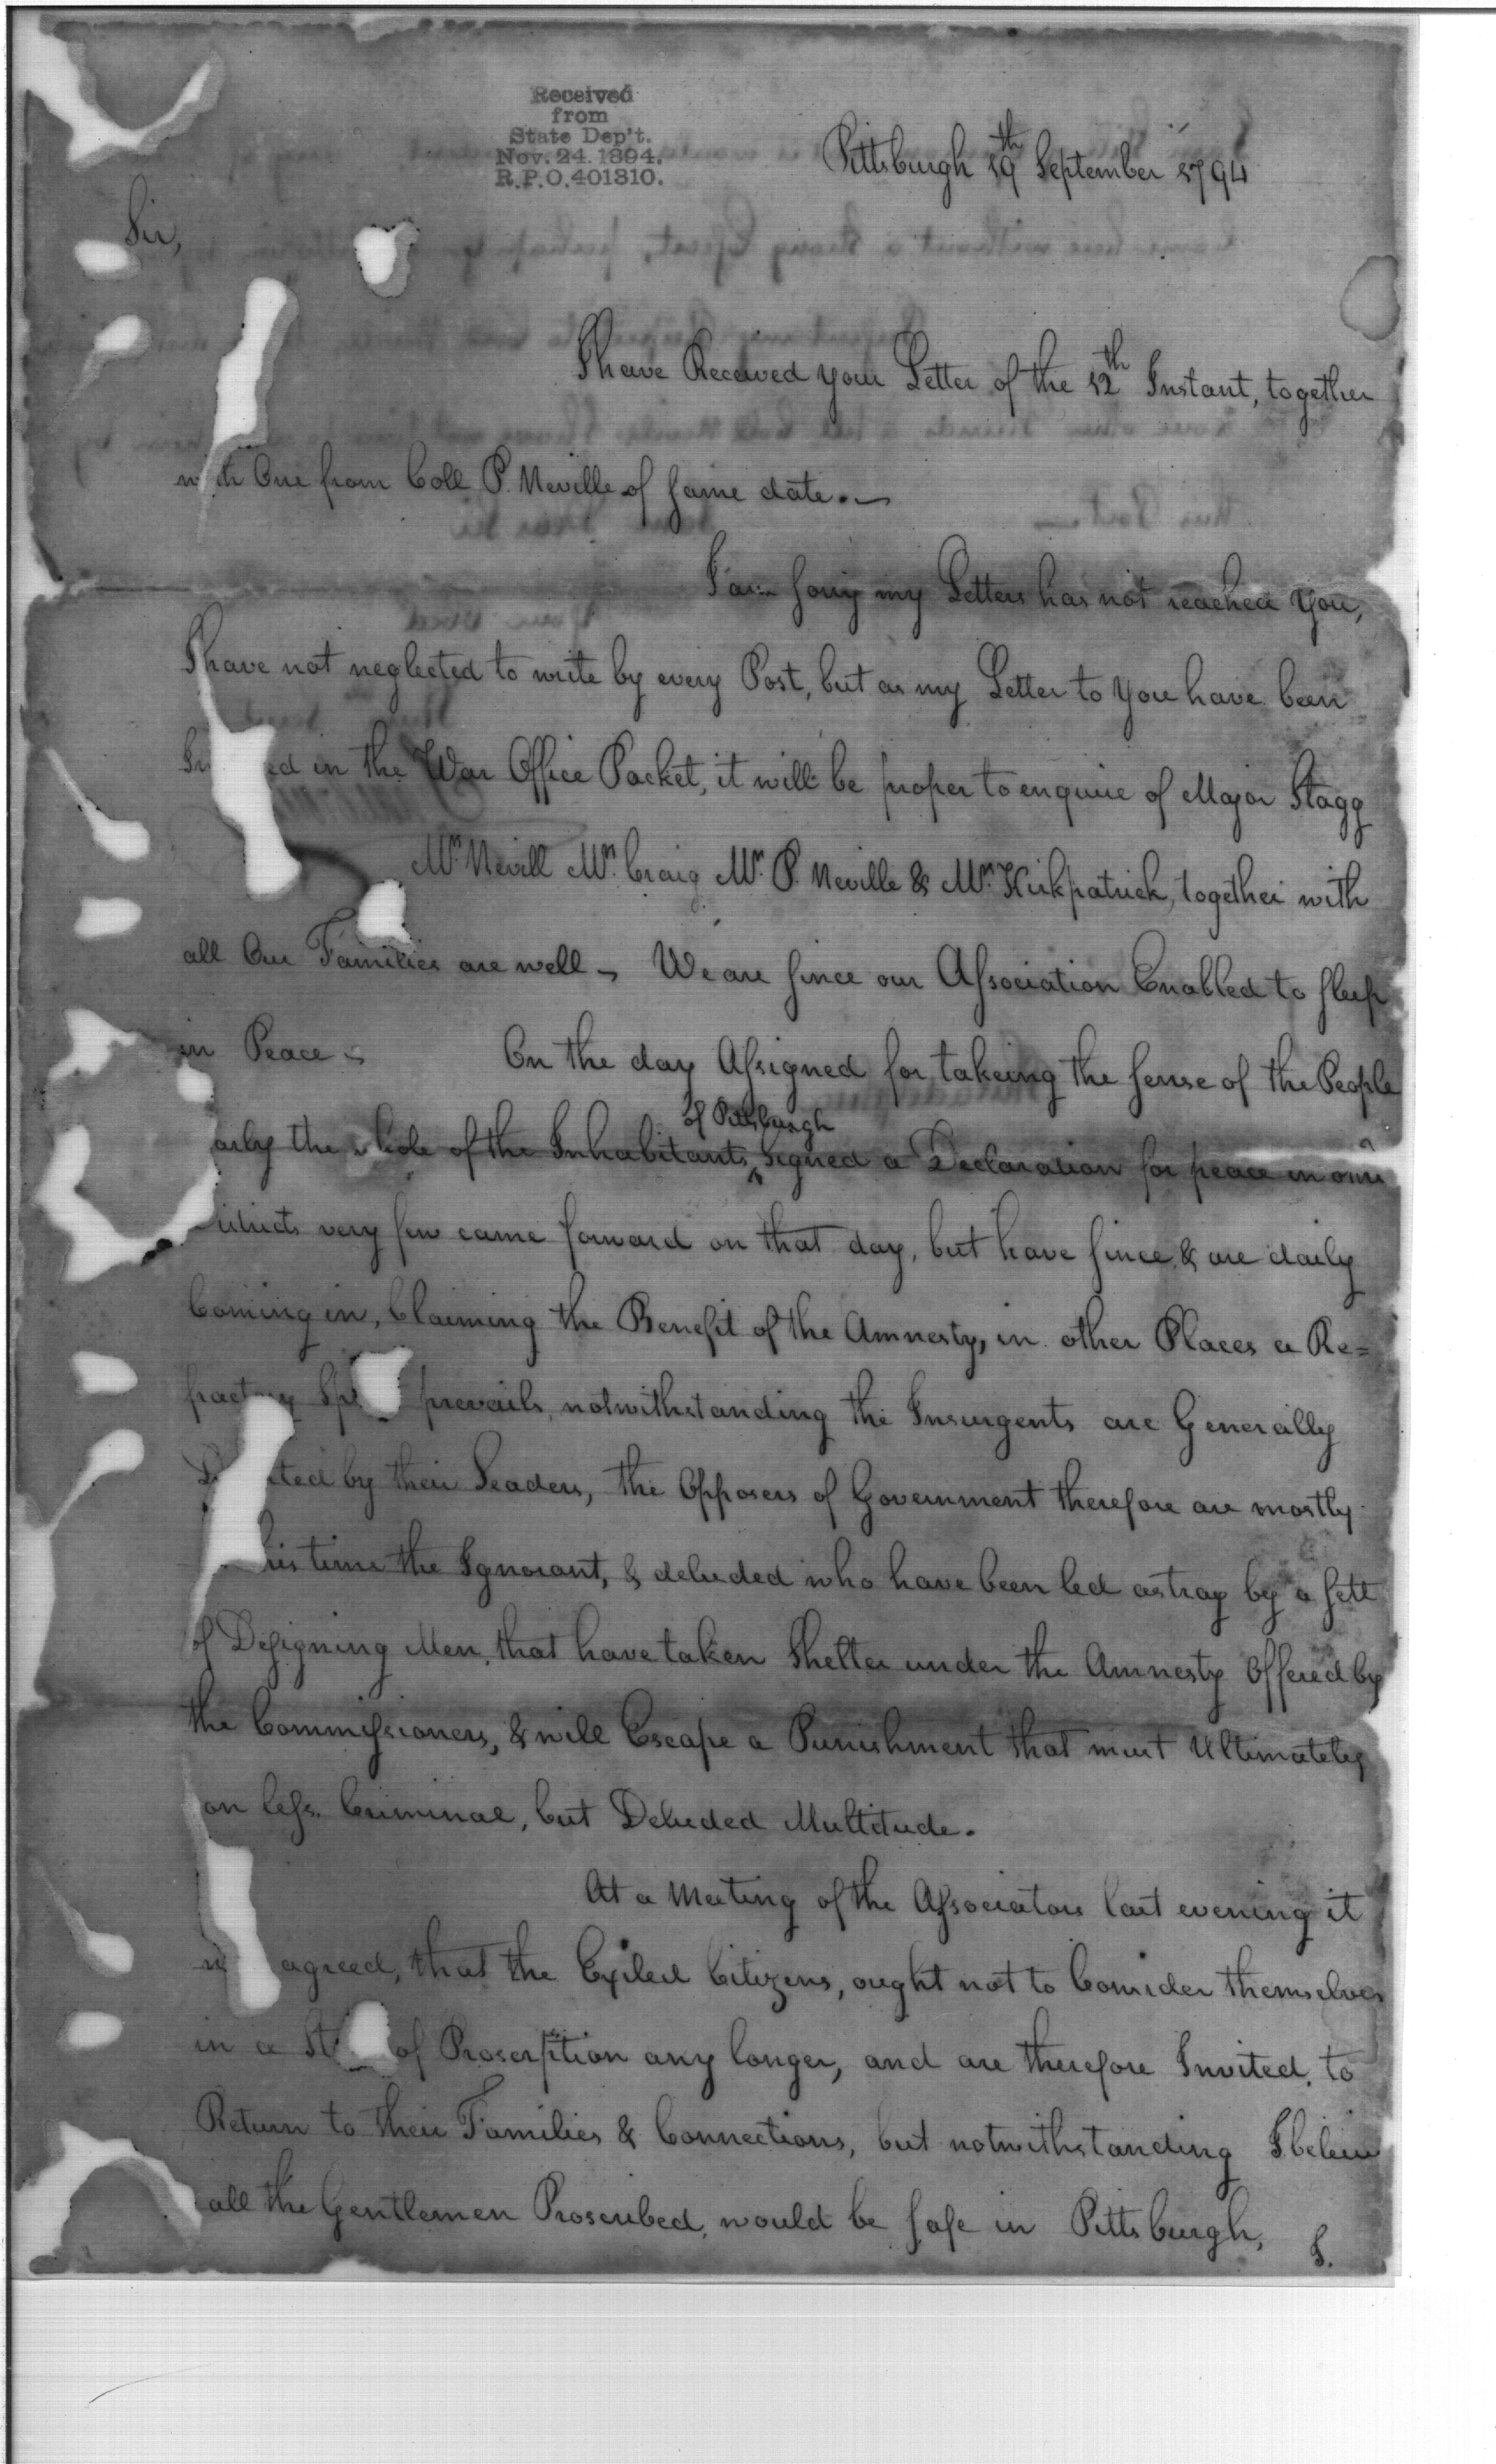 Received
from
State Dep't.
Nov. 24. 1894.
R.P.O. 401310.
Pittsburgh 19th September 1794
Sir,
I have Received your Letter of the 12th Instant, together
with One from Coll P. Neville of same date.
I am sorry my Letters has not reached you,
I have not neglected to write by every Post, but as my Letter to you have been
in the War Office Packet, it will be proper to enquire of Major Stagg
Mrs Nevill Mrs Craig Mrs P. Neville & Mrs Kirkpatrick, together with
all Our Families are well - We are since our Association Enabled to sleep
in Peace - On the day Assigned for takeing the sense of the People
arly the whole of the Inhabitants of Pittsburgh Signed a Declaration for peace in
very few came forward on that day, but have since & are daily
Coming in, Claiming the Benefit of the Amnesty, in other Places a Re=
fractory prevails, notwithstanding the Insurgents are Generally
by their Leaders, the Opposers of Government therefore are mostly
his time the Ignorant, & deluded who have been led astray by a sett
of Designing Men, that have taken Shelter under the Amnesty Offered by
the Commissioners, & will Escape a Punishment that must Ultimately
on less Criminal, but Deluded Multitude.
At a Meeting of the Associators last evening it
agreed, that the Exiled Citizens, ought not to Consider themselves
in a of Proscription any longer, and are therefore Invited, to
Return to their Families & Connections, but notwithstanding I believe
all the Gentlemen Proscribed, would be safe in Pittsburgh, I.